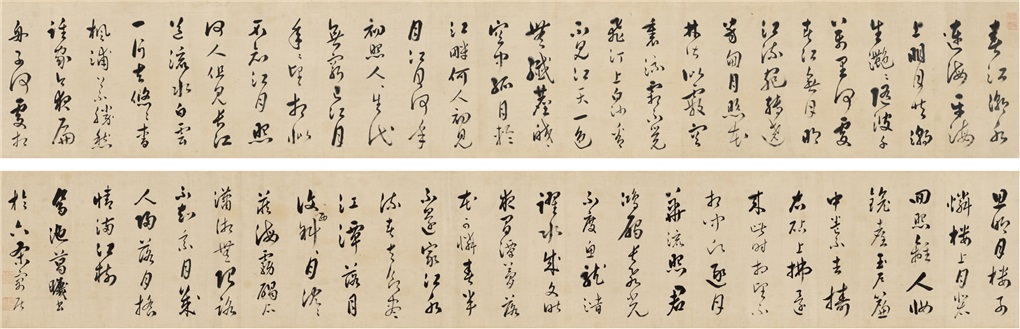 春江潮水
連海平海
上明月共潮
生灧灧隨波千
萬里何處
春江無月明
江流宛轉遶
芳甸月照花
林皆似霰空
裏流霜不覺
飛汀上白沙看
不見江天一色
無纖塵皎
空中孤月輪
江畔何人初見
月江月何年
初照人人生代
無窮已江月
年年望相似
不知江月照
何人但見長江
送流水白雲
一片去悠悠青
楓浦上不勝愁
誰家今夜扁
舟子何處相
思明月樓可
憐樓上月裴
回照離人妝
鏡臺玉戶簾
中卷去擣
衣砧上拂還
來此時相望不
相聞願逐月
華流照君
鴻鴈長飛光
不度魚龍潛
躍水成文昨
夜閒潭夢落
花可憐春半
不還家江水
流春去欲盡
江潭落月
復西斜月沉
藏海霧碣石
瀟湘無限路
不知乘月幾
人歸落月搖
情滿江樹
池葛曦書
於六